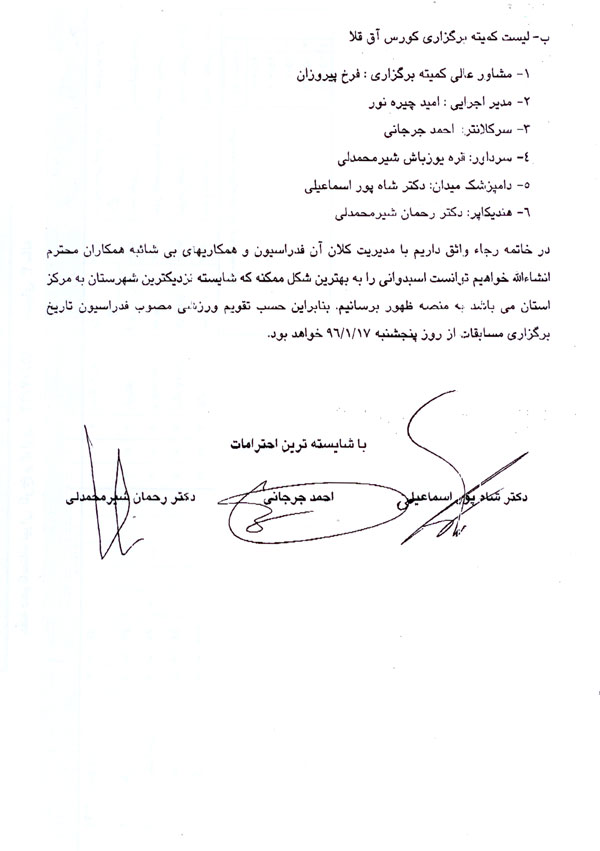 ب- لیست کمیته برگزاری کورس آق قلا
۱- مشاور عالی کمیته برگزاری : فرخ پیروزان
۲- مدیر اجرایی : امید چیره نور
۳- سرکلانتر: احمد جرجانی
٤- سرداور: قره یوزباش شیرمحمدلی
۵- دامپزشک میدان: دکتر شاه پور اسماعیلی
٦- هندیکاپر: دکتر رحمان شیرمحمدلی
در خاتمه رجاء واثق داریم با مدیریت کلان آن فدراسیون و همکاریهای بی شائبه همکاران محترم
انشاءالله خواهیم توانست اسبدوانی را به بهترین شکل ممکنه که شایسته نزدیکترین شهرستان به مرکز
استان می باشد به منصه ظهور برسانیم، بنابراین حسب تقویم ورزشی مصوب فدراسیون تاریخ
برگزاری مسابقات از روز پنجشنبه ۹٦/۱/۱۷ خواهد بود.
با شایسته ترین احترامات
دکتر شاه پور اسماعیلی احمد جرجانی دکتر رحمان شیرمحمدلی